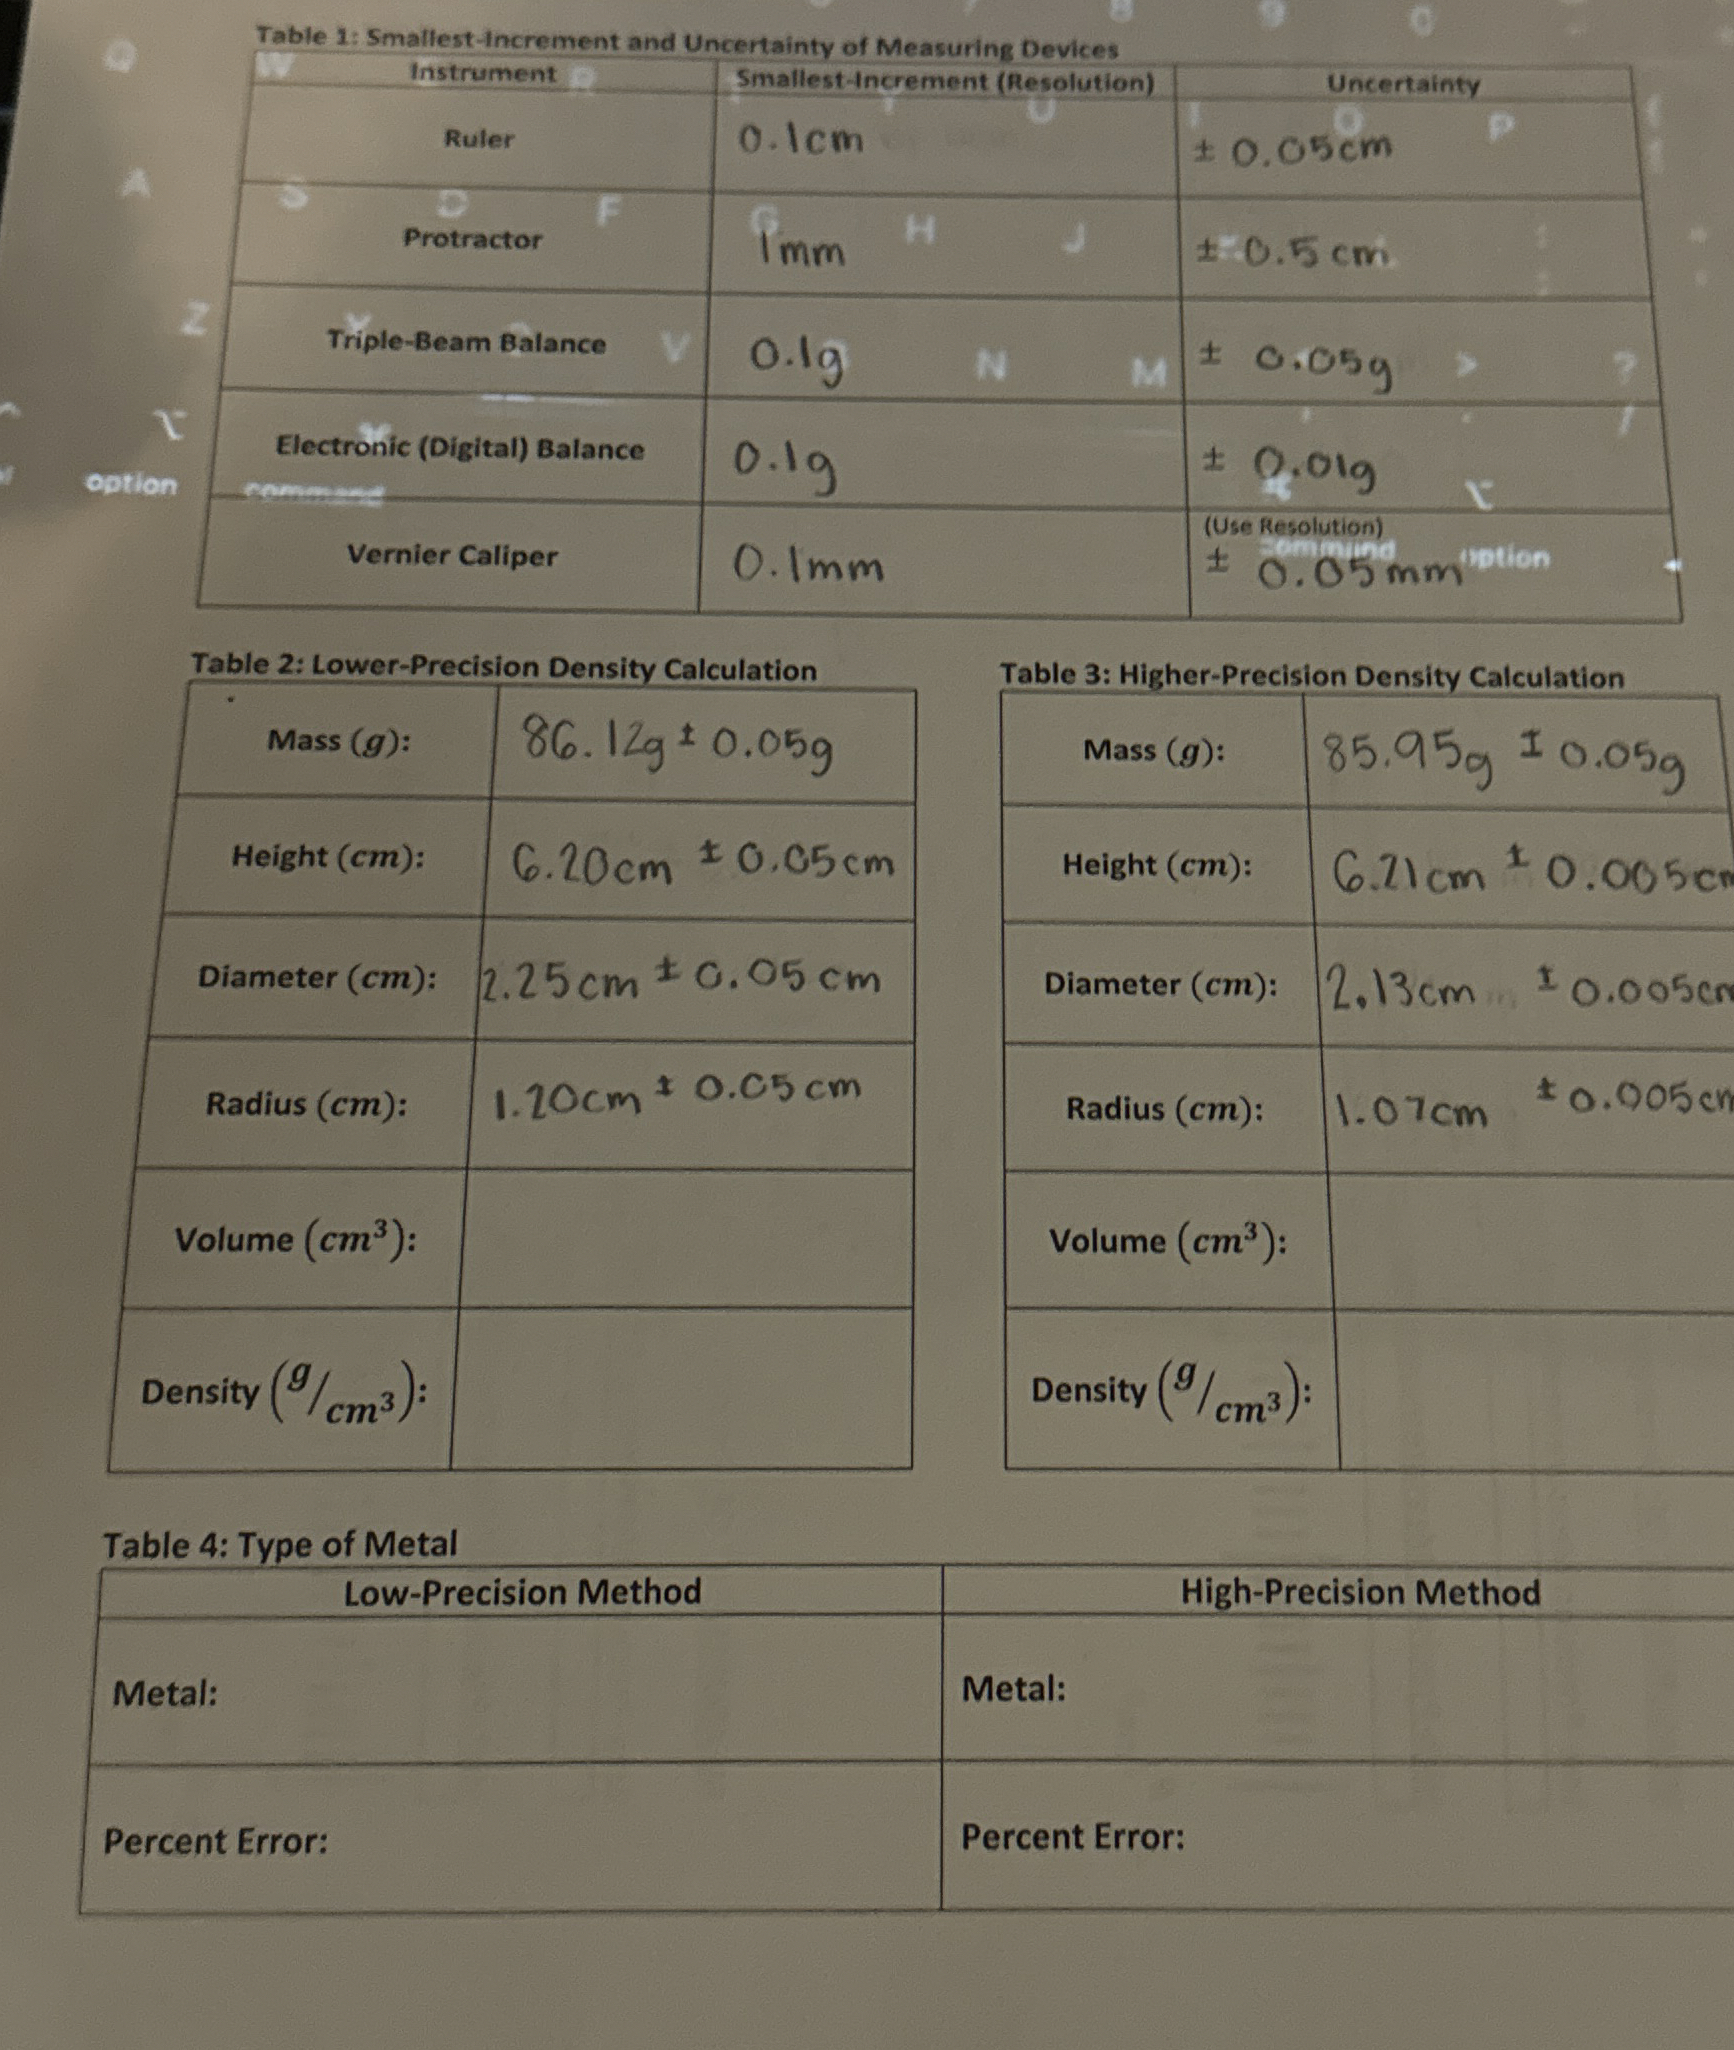 Table 1: Smallest-Increment and Uncertainty of Measuring Devices
Instrument Smallest-Increment (Resolution) Uncertainty
Ruler 0.1cm ± 0.05cm
Protractor 1mm ± 0.5 cm
Triple-Beam Balance 0.1g ± 0.05g
Electronic (Digital) Balance 0.1g ± 0.01g
(Use Resolution)
Vernier Caliper 0.1mm ± 0.05mm
option command command option
Table 2: Lower-Precision Density Calculation
Mass (g): 86.12g ± 0.05g
Height (cm): 6.20cm ± 0.05cm
Diameter (cm): 2.25cm ± 0.05cm
Radius (cm): 1.20cm ± 0.05cm
Volume (cm³):
Density (g/cm³):
Table 3: Higher-Precision Density Calculation
Mass (g): 85.95g ± 0.05g
Height (cm): 6.21cm ± 0.005cm
Diameter (cm): 2.13cm ± 0.005cm
Radius (cm): 1.07cm ± 0.005cm
Volume (cm³):
Density (g/cm³):
Table 4: Type of Metal
Low-Precision Method High-Precision Method
Metal: Metal:
Percent Error: Percent Error: